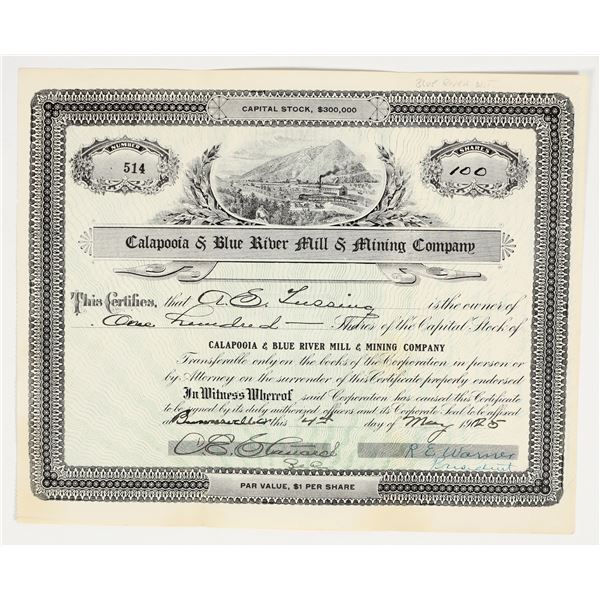 Blue River
CAPITAL STOCK, $300,000
NUMBER
514
SHARES
100
Calapooia & Blue River Mill & Mining Company
This Certifies, that A. E. Tussing is the owner of
One hundred — Shares of the Capital Stock of
CALAPOOIA & BLUE RIVER MILL & MINING COMPANY
Transferable only on the books of the Corporation in person or
by Attorney on the surrender of this Certificate properly endorsed
In Witness Whereof said Corporation has caused this Certificate
to be signed by its duly authorized officers and its Corporate Seal to be affixed
at this 4th day of May 19 5
R E Warner
President
PAR VALUE, $1 PER SHARE